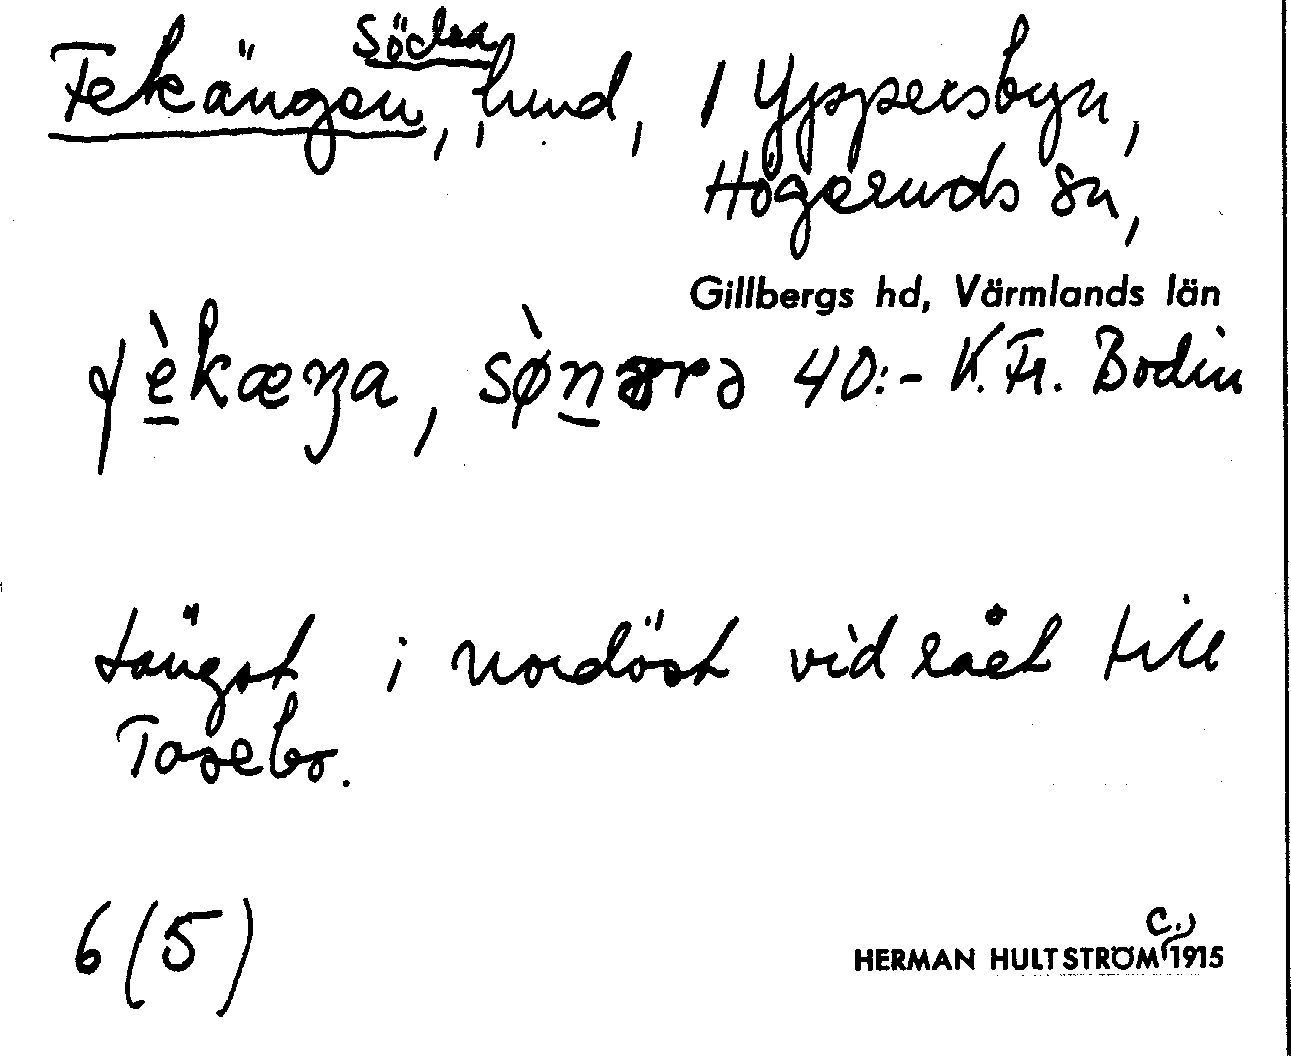 Fekängen, Södra, lund, 1 Yppersbyn,
Högeruds sn,
Gillbergs hd, Värmlands län
40:- K. Fr. Bodin
Längst i nordöst vid rået till
Tosebo.
6 (5)
HERMAN HULTSTRÖM c. 1915